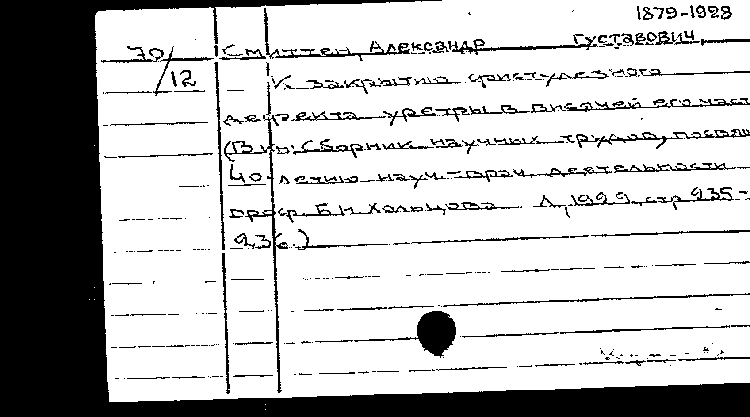 1879-1928
70/12 Смиттен, Александр Густавович,
К закрытию фистулезного
дефекта уретры в висячей его част
(В кн: Сборник научных трудов, посвящ
40-летию науч.-врач. деятельности
проф. Б.Н. Хольцова Л, 1929, стр 235-
236.)